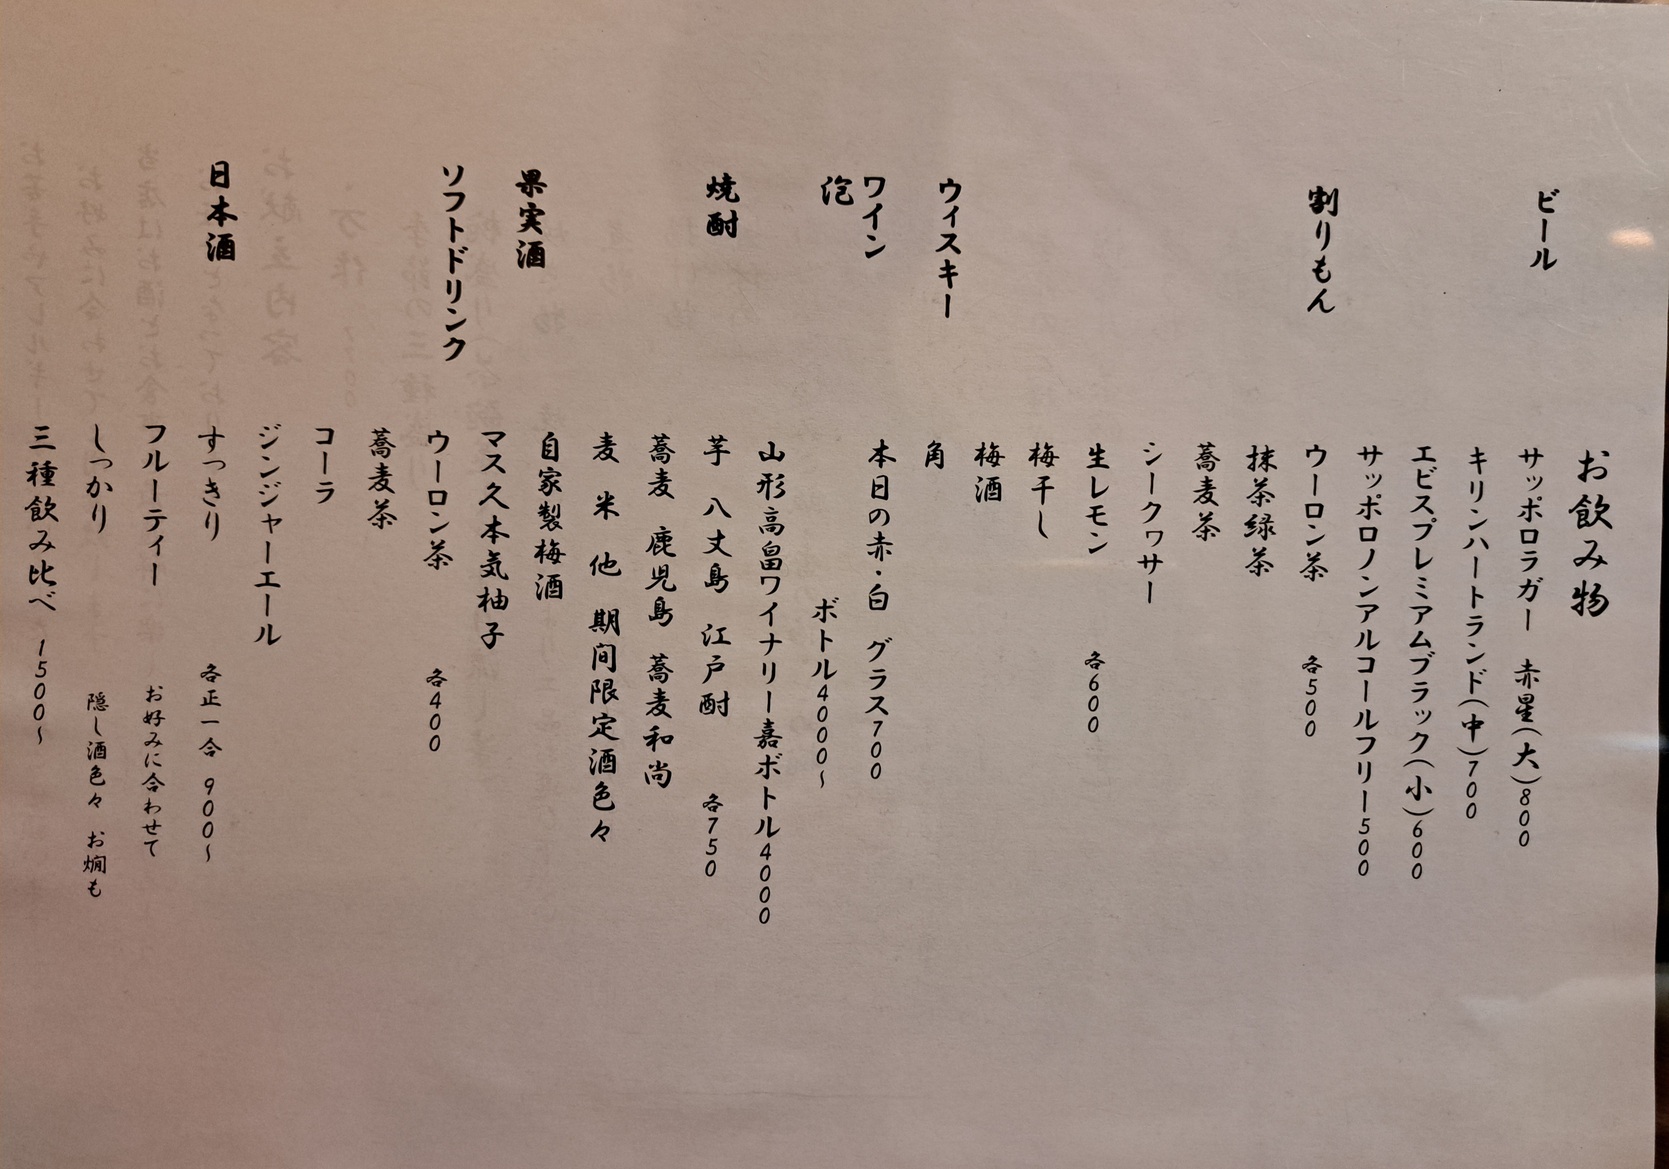 お飲み物
ビール
サッポロラガー 赤星(大)800
キリンハートランド(中)700
エビスプレミアムブラック(小)600
サッポロノンアルコールフリー500
割りもん
ウーロン茶 各500
抹茶緑茶
蕎麦茶
シークヮサー
生レモン 各600
梅干し
梅酒
ウィスキー
角
ワイン
本日の赤・白 グラス700
ボトル4000~
泡
山形高畠ワイナリー嘉ボトル4000
焼酎
芋 八丈島 江戸酎 各750
蕎麦 鹿児島 蕎麦和尚
麦 米 他 期間限定酒色々
果実酒
自家製梅酒
マス久本気柚子
ソフトドリンク
ウーロン茶 各400
蕎麦茶
コーラ
ジンジャーエール
日本酒
すっきり 各正一合 900~
フルーティー お好みに合わせて
しっかり 隠し酒色々 お燗も
三種飲み比べ 1500~